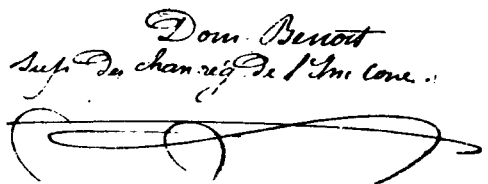 Dom Benoit
Sup. des chan. rég. de l'Im. conc.